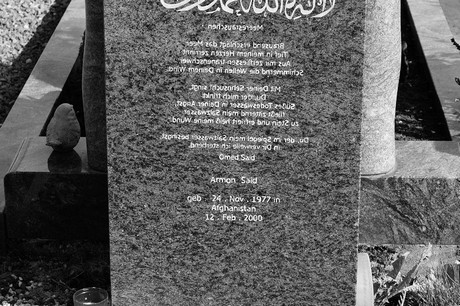 لا اله الا الله محمد
Meeresrauschen
Brausend erschlägt das Meer
Tief in meinem Herzen zerrinnt
Aus mir zerfliessen
Schimmernd die Wellen in Deinem Wind
Mit Deiner Sehnsucht singt
mich trinkt
Süßes Todeswasser in Deiner Angst
fließt zitternd mein Salzwasser
Zu Stein und erfriert heiß meine Wund
Du der im Spiegel mein Salzwasser besingst
In Dir verweile ich sterbend
Omed Said
Armon Said
geb 24 . Nov . 1977 in
Afghanistan
12 . Feb . 2000